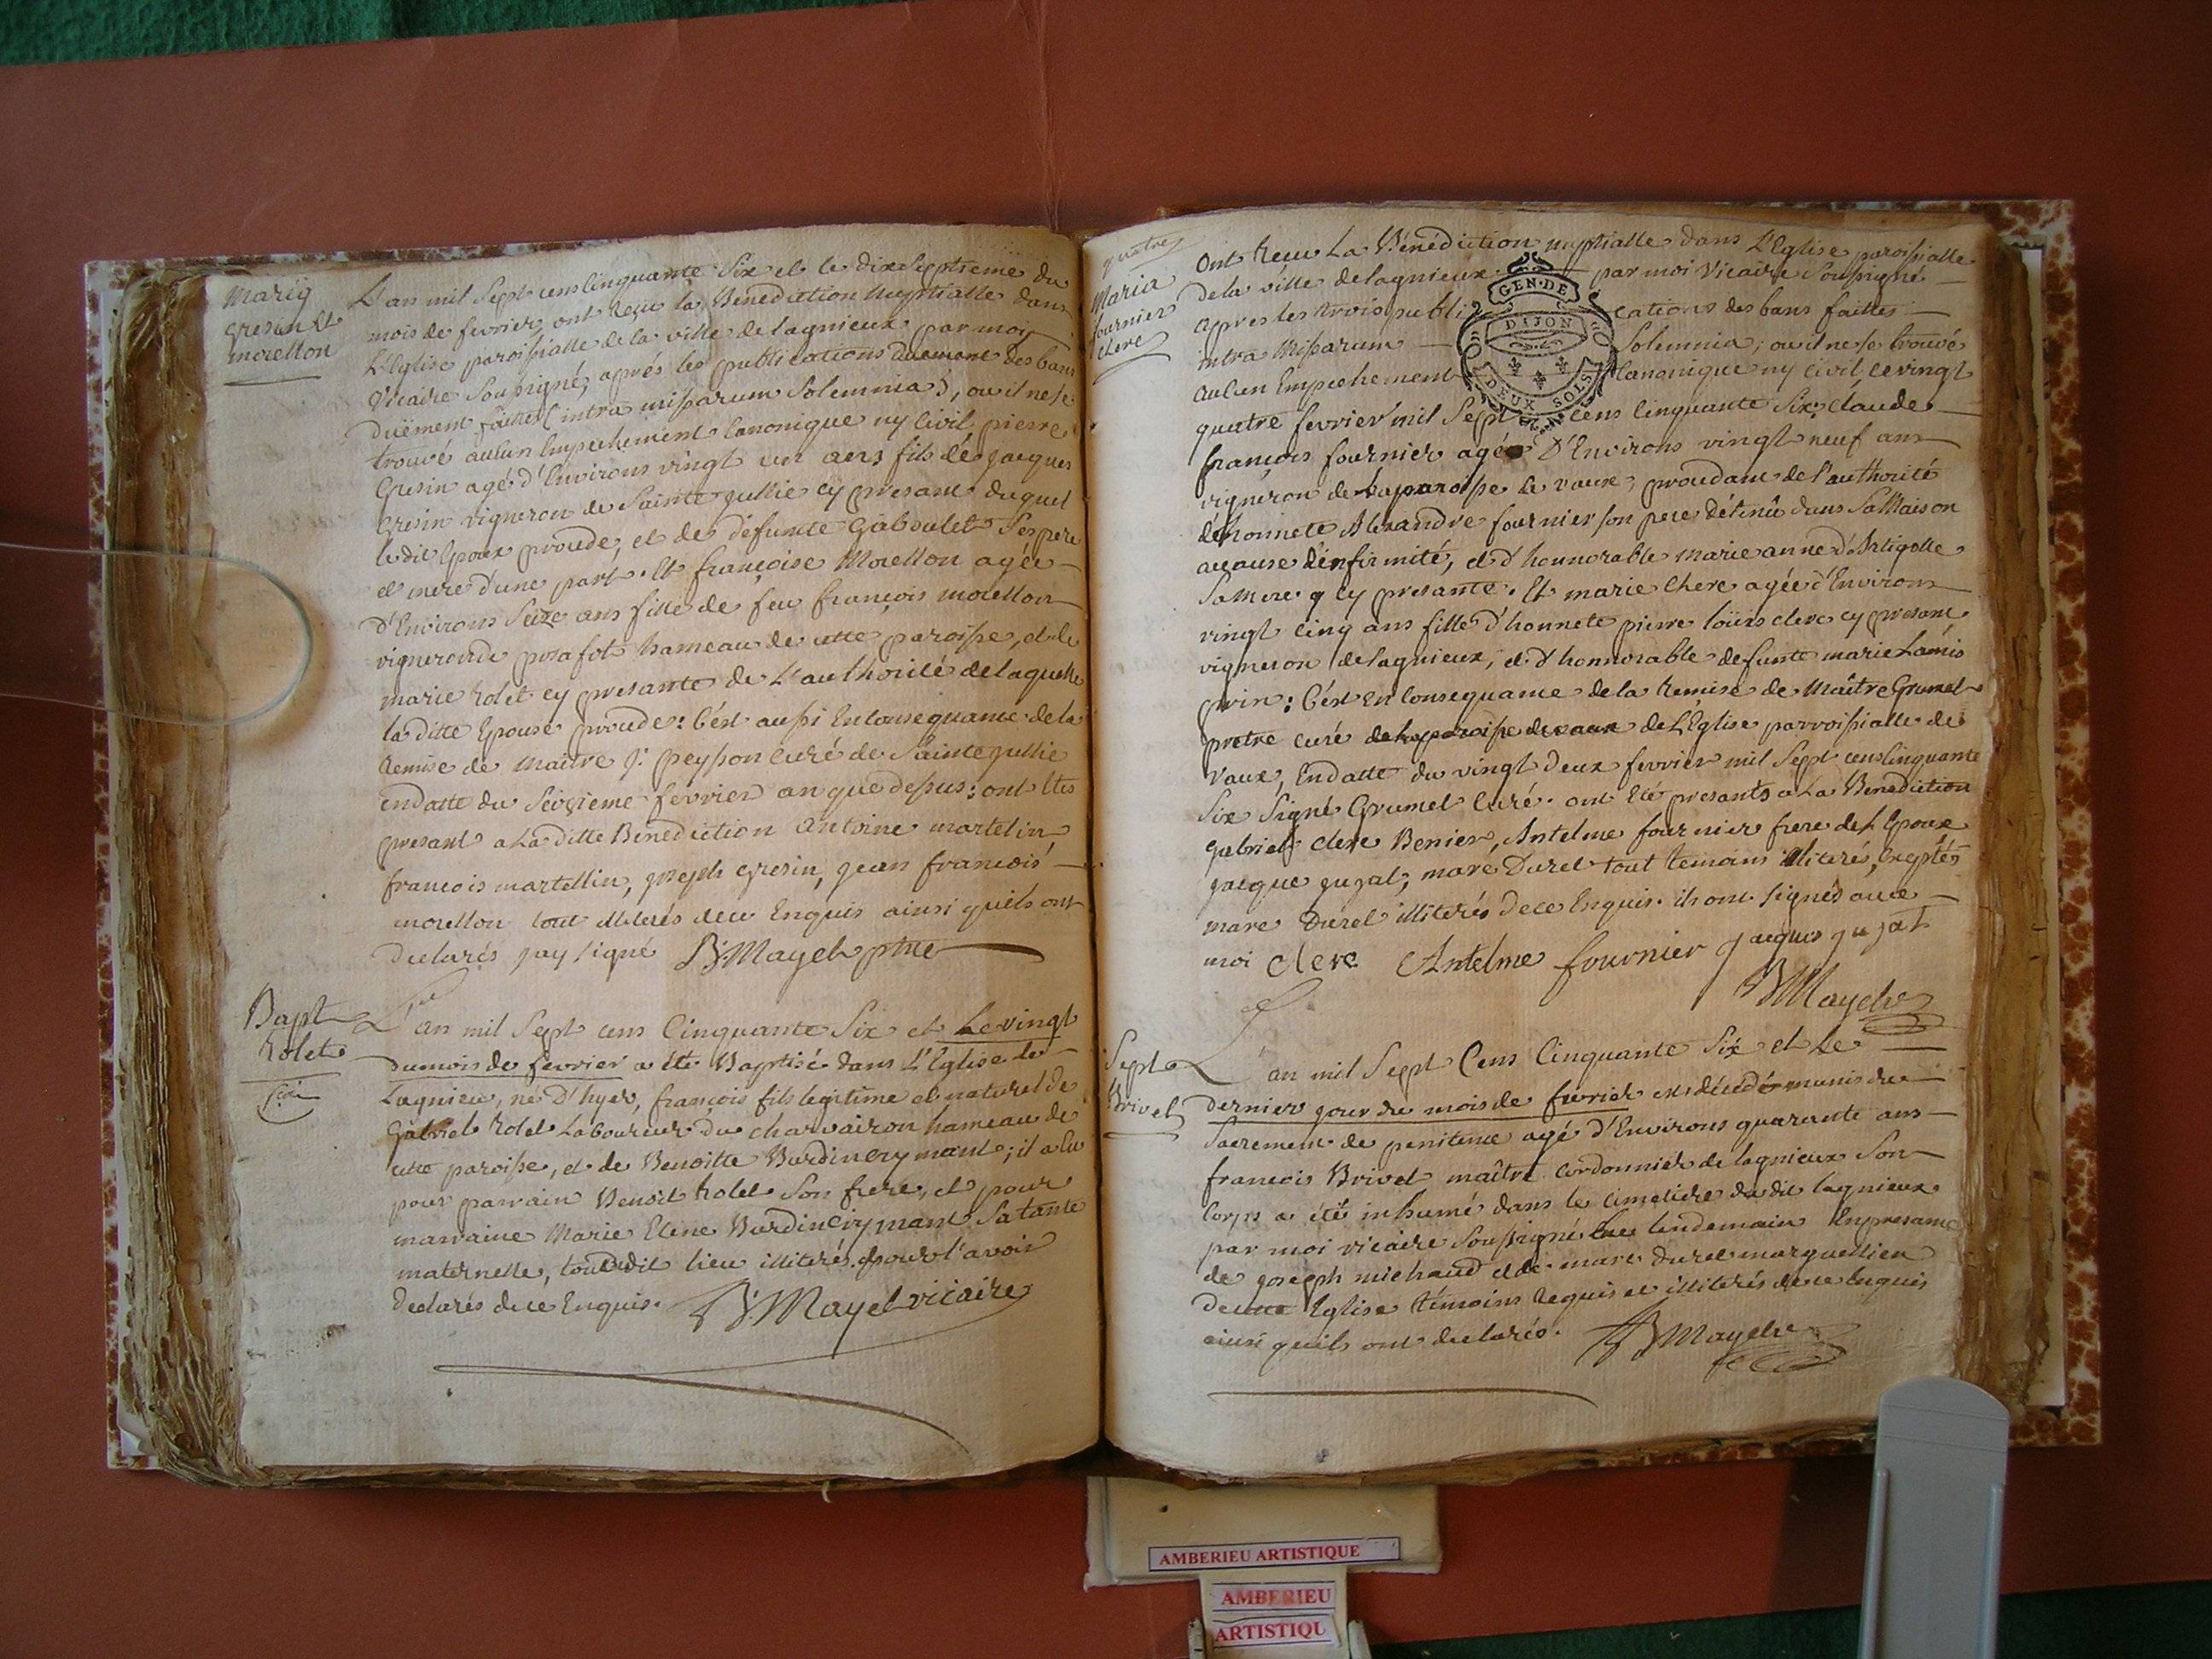 Mariag
Gresin et
morellon
L'an mil Sept cens cinquante Six et le dixSeptieme du
mois de fevrier ont Reçu la Benediction Nuptialle dans
L'Eglise paroissialle de la ville de lagnieux par moy
Vicaire Soussigné, aprés les publications duement des bans
duëment faittes (intra missarum Solemnia), ou il ne se
trouvé aucun Empechement Canonique ny Civil pierre
Gresin agé d'Environs vingt un ans fils de jacques
Gresin vigneron de Sainte jullie cy presant duquel
ledit Epoux procede, et de defunte Gaboulet Ses pere
et mere d'une part. Et françoise Morellon agée
d'Environs Seize ans fille de feu françois morellon
vigneron de posafol hameau de cette paroisse, et de
marie rolet cy presante de L'authorité de laquelle
la ditte Epouse procede : C'est aussi En consequance de la
Remise de Maître J: peysson curé de Sainte jullie
en datte du Seizieme fevrier an que dessus : ont Etés
presant a La ditte Benediction Antoine martelin,
francois martellin, joseph Gresin, jean francois
morellon tout illiterés de ce Enquis ainsi quils ont
declarés jay signé B. Mayet ptre
Bapt
rolet
L'an mil Sept cens Cinquante Six et Le vingt
du mois de fevrier a été Baptisé dans L'Eglise de
Lagnieu, né D'hyer, françois fils legitime et naturel de
Gabriel rolet Laboureur du charvairon hameau de
cette paroisse, et de Benoitte Burdin Crymant ; il a Eu
pour parrain Benoit rolet Son frere, et pour
marraine Marie Elene Burdin Crymant Sa tante
maternelle, tout dudit lieu illiterés pour l'avoir
declarés de ce Enquis. B. Mayet vicaire
quatre
Maria
fournier
clerc
Ont Recu La Bénédiction nuptialle dans L'Eglise paroissialle
de la ville de lagnieux par moi Vicaire Soussigné
Apres les trois publications des bans faittes
GEN. DE
DIJON
DEUX SOLS
intra Missarum Solemnia ; ou il ne se trouvé
aucun Empechement Canonique ny civil ce vingt
quatre fevrier mil Sept cens Cinquante Six, claude
françois fournier agé D'Environs vingt neuf ans
vigneron de la paroisse de vaux, procedant de l'authorité
dehonnete Alexandre fournier son pere détenû dans Sa Maison
acause d'enfirmité, et d'honnorable marie anne d'Artigolle
Sa Mere cy presante. Et marie Clerc agée d'Environs
vingt cinq ans fille d'honnete pierre loüis clerc cy presant
vigneron de lagnieux, et d'honnorable defunte marie
: C'est en Consequance de la Remise de Maître Grumet
pretre curé de la paroisse de vaux de L'Eglise parroissialle de
Vaux, En datte du vingt deux fevrier mil Sept cens Cinquante
Six Signé Grumet Curé. ont Eté presants a La Benediction
gabriel Clerc Benier, Antelme fournier frere de L'Epoux
jacque juzat, marc Durel tout temoins illiterés, Exeptés
marc Durel illiterés de ce Enquis. ils ont Signés avec
moi Clerc Antelme fournier jacques juzat
B Mayet
Sept
Brivet
L'an mil Sept Cens Cinquante Six et Le
dernier jour du mois de fevrier est décedé munis du
Sacrement de penitence agé d'Environs quarante ans
francois Brivet maître cordonnier de lagnieux Son
Corps a été inhumé dans le Cimetiere du dit lagnieux
par moi vicaire Soussigné Le lendemain En presance
de joseph michaud et de marc durel marguellier
de cette Eglise témoins Requis et illiterés de ce enquis
ainsi quils ont declarés. B Mayet
AMBERIEU ARTISTIQUE
AMBERIEU
ARTISTIQU